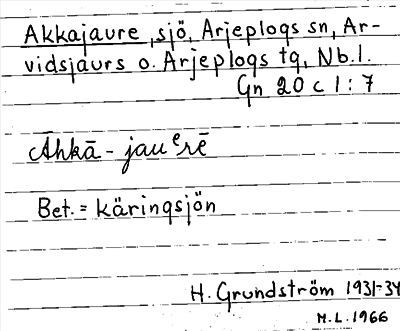 Akkajaure, sjö, Arjeplogs sn, Ar-
vidsjaurs o. Arjeplogs tg, Nb.l.
Gn 20 c 1:7
Āhkā - jauᵉrē
Bet. = käringsjön
H. Grundström 1931-34
M.L. 1966